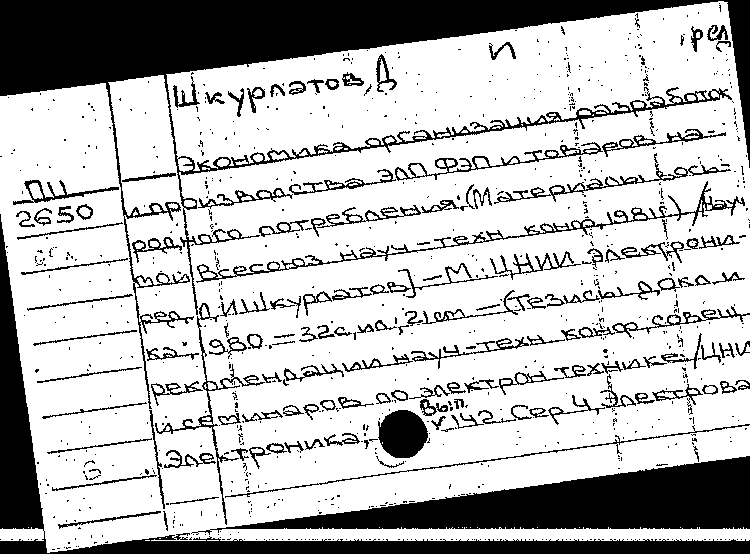 Шкурлатов, Д И , ред
Экономика, организация разработок
ПII
2650
и производства ЭЛП, ФЭП и товаров на-
родного потребления; (Материалы вось-
мой Всесоюз науч-техн конф, 1981г) / Науч
ред. Д, И Шкурлатов]. — М.: ЦНИИ электрони-
ка; 1980. — 32с, ил; 21см — (Тезисы докл и
рекомендации науч-техн конф, совещ
и семинаров по электрон технике / ЦНИ
Электроника; Вып 142 Сер 4, Электрова